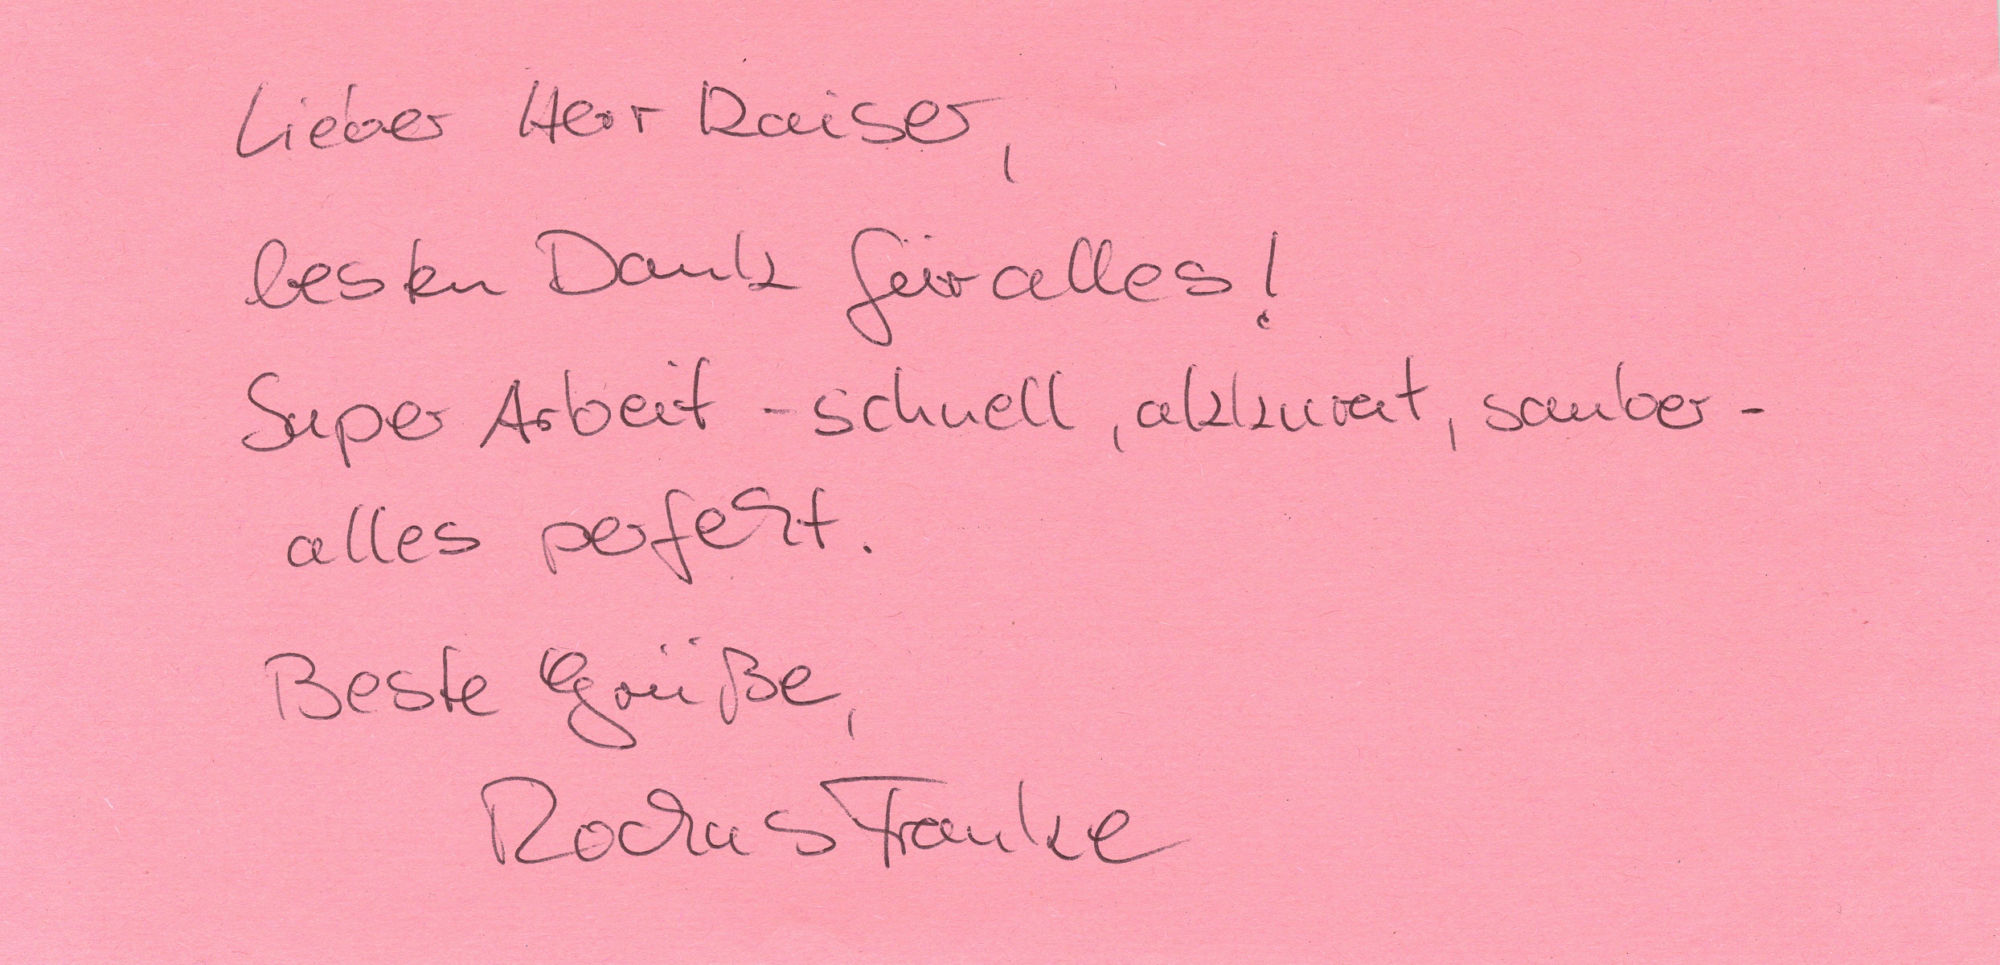 Lieber Herr Kaiser,
besten Dank für alles!
Super Arbeit - schnell, akkurat, sauber -
alles perfekt.
Beste Grüße,
Rochus Franke